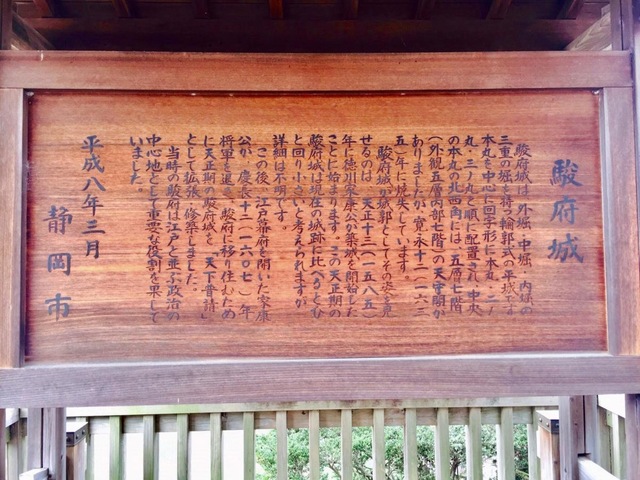 駿府城
駿府城は、外堀、中堀、内堀の
三重の堀を持つ輪郭式の平城です。
本丸を中心に回字形に本丸、二ノ
丸、三ノ丸と順に配置され、中央
の本丸の北西角には、五層七階
(外観五層内部七階)の天守閣が
ありましたが、寛永十二(一六三
五)年に焼失しています。
駿府城が城郭としてその姿を見
せるのは、天正十三(一五八五)
年に徳川家康公が築城を開始した
ことに始まります。この天正期の
駿府城は現在の城跡に比べるとひ
と回り小さいと考えられますが、
詳細は不明です。
この後、江戸幕府を開いた家康
公が、慶長十二(一六〇七)年
将軍を退き、駿府に移り住むため
に天正期の駿府城を「天下普請」
として拡張・修築しました。
当時の駿府は江戸と並ぶ政治の
中心地として重要な役割を果して
いました。
平成八年三月
静岡市